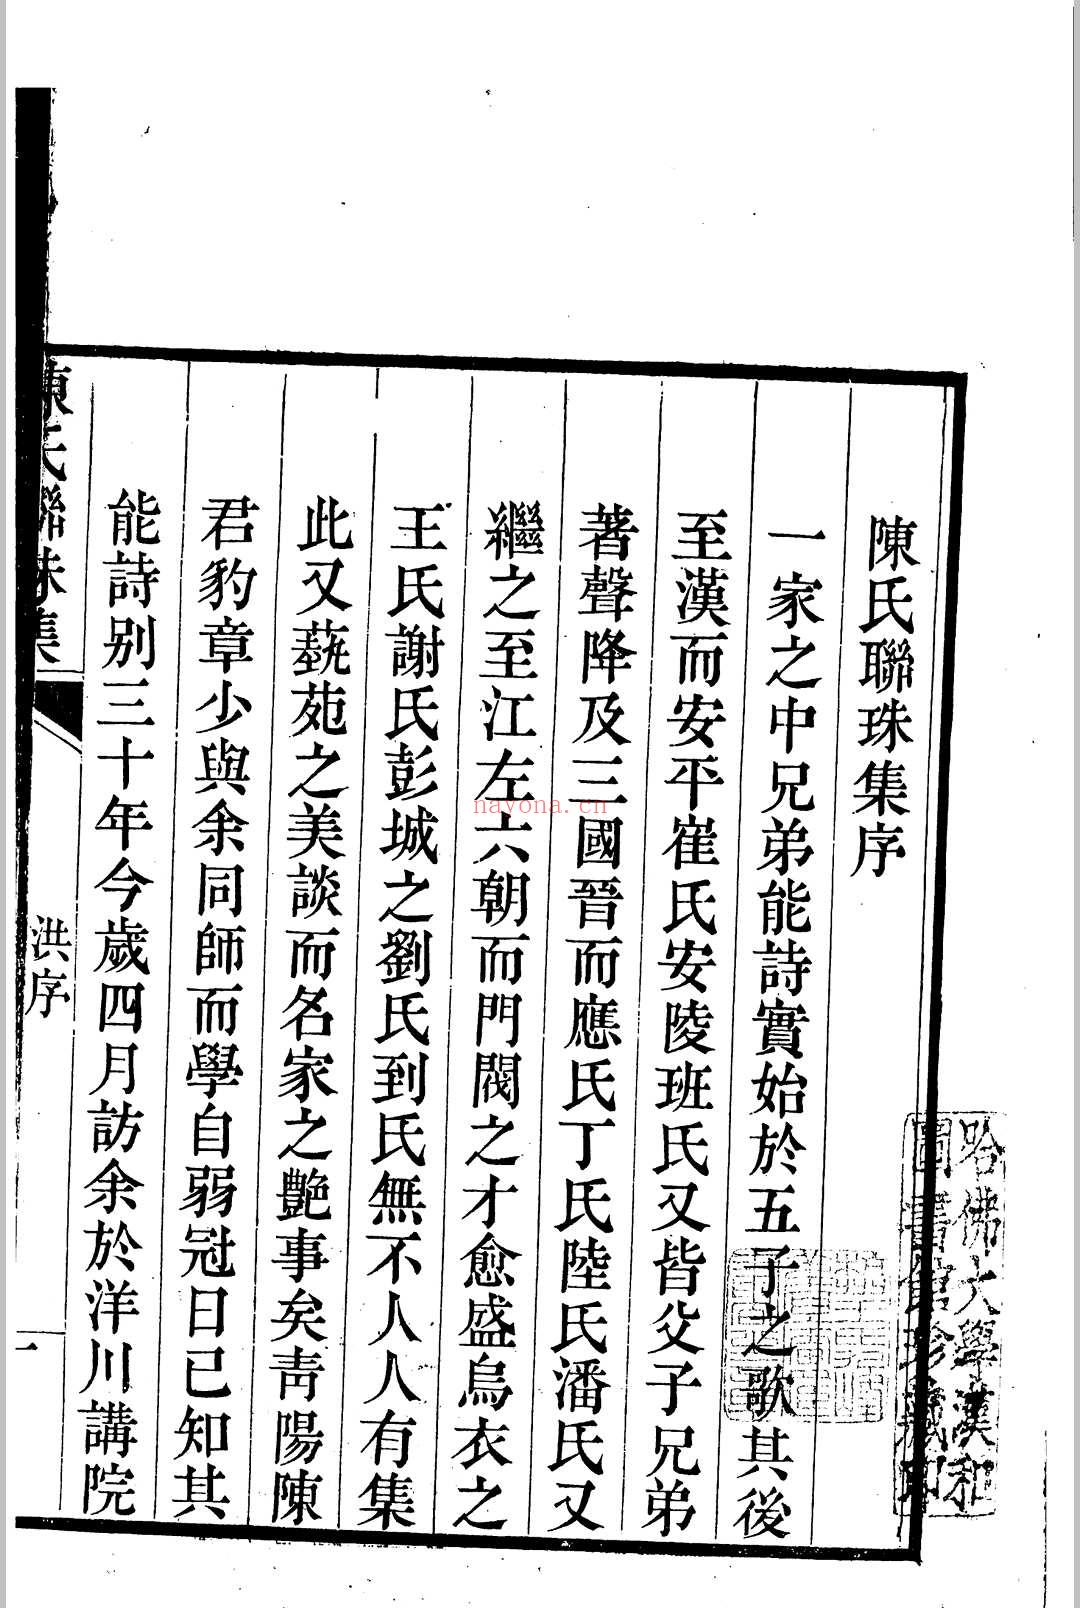 陳氏聯珠集序
一家之中兄弟能詩實始於五子之歌其後
至漢而安平崔氏安陵班氏又皆父子兄弟
著聲降及三國晉而應氏丁氏陸氏潘氏又
繼之至江左六朝而門閥之才愈盛烏衣之
王氏謝氏彭城之劉氏到氏無不人人有集
此又蓺苑之美談而名家之艷事矣青陽陳
君豹章少與余同師而學自弱冠日已知其
能詩别三十年今歲四月訪余於洋川講院
陳氏聯珠集
洪序
一
哈佛大學漢和
圖書館珍藏印
nayona.cn